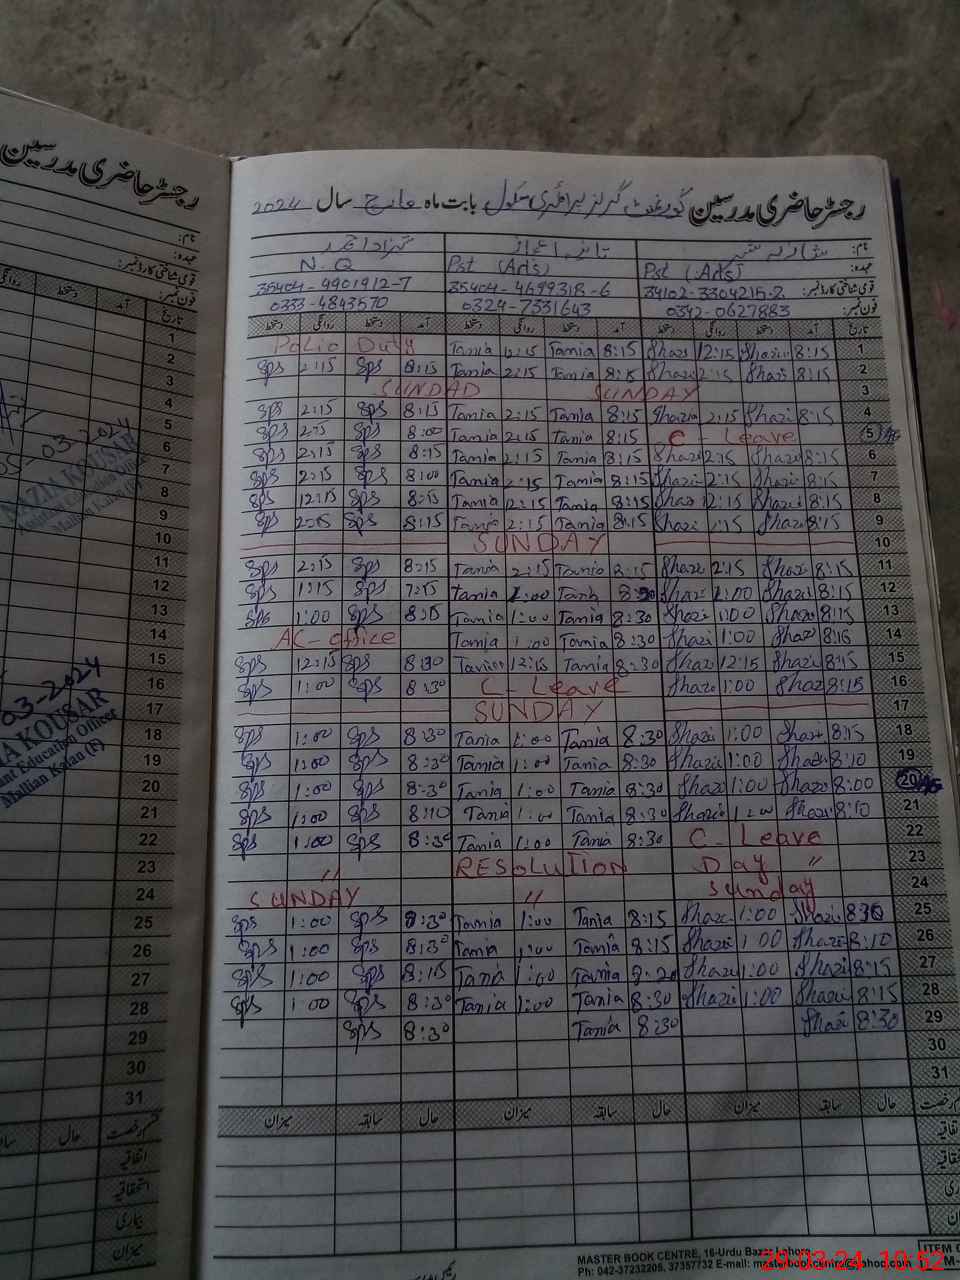 رجسٹر حاضری مدرسین گورنمنٹ گرلز پرائمری سکول بابت ماہ مارچ سال 2024
نام:
عہدہ: Pst (Arts) Pst (Arts) N.Q
قومی شناختی کارڈ نمبر: 34102-3304215-2 35404-4699318-6 35404-4901912-7
فون نمبر: 0342-0627883 0324-7331643 0333-4843570
تاریخ آمد دستخط روانگی دستخط آمد دستخط روانگی دستخط آمد دستخط روانگی دستخط
Polio Duty Tania 12:15 Tania 8:15 Shazi 12:15 Shazi 8:15 1
Sps 2:15 Sps 8:15 Tania 2:15 Tania 8:15 Shazi 2:15 Shazi 8:15 2
SUNDAD SUNDAY 3
Sps 2:15 Sps 8:15 Tania 2:15 Tania 8:15 Shazia 2:15 Shazi 8:15 4
Sps 2:15 Sps 8:00 Tania 2:15 Tania 8:15 C - Leave 5
Sps 2:15 Sps 8:15 Tania 2:15 Tania 8:15 Shazi 2:15 Shazi 8:15 6
Sps 2:15 Sps 8:00 Tania 2:15 Tania 8:15 Shazi 2:15 Shazi 8:15 7
Sps 12:15 Sps 8:15 Tania 12:15 Tania 8:15 Shazi 12:15 Shazi 8:15 8
Sps 2:15 Sps 8:15 Tania 2:15 Tania 8:15 Shazi 2:15 Shazi 8:15 9
SUNDAY 10
Sps 2:15 Sps 8:15 Tania 2:15 Tania 8:15 Shazi 2:15 Shazi 8:15 11
Sps 1:15 Sps 7:45 Tania 1:00 Tania 8:30 Shazi 1:00 Shazi 8:15 12
Sps 1:00 Sps 8:15 Tania 1:00 Tania 8:30 Shazi 1:00 Shazi 8:15 13
AC-office Tania 1:00 Tania 8:30 Shazi 1:00 Shazi 8:15 14
Sps 12:15 Sps 8:30 Tania 12:15 Tania 8:30 Shazi 12:15 Shazi 8:15 15
Sps 1:00 Sps 8:30 C - Leave Shazi 1:00 Shazi 8:15 16
SUNDAY 17
Sps 1:00 Sps 8:30 Tania 1:00 Tania 8:30 Shazi 1:00 Shazi 8:15 18
Sps 1:00 Sps 8:30 Tania 1:00 Tania 8:30 Shazi 1:00 Shazi 8:10 19
Sps 1:00 Sps 8:30 Tania 1:00 Tania 8:30 Shazi 1:00 Shazi 8:00 20
Sps 1:00 Sps 8:10 Tania 1:00 Tania 8:30 Shazi 1:00 Shazi 8:10 21
Sps 1:00 Sps 8:30 Tania 1:00 Tania 8:30 C - Leave 22
" RESOLUTION Day " 23
SUNDAY " Sunday 24
Sps 1:00 Sps 8:30 Tania 1:00 Tania 8:15 Shazi 1:00 Shazi 830 25
Sps 1:00 Sps 8:30 Tania 1:00 Tania 8:15 Shazi 1:00 Shazi 8:10 26
Sps 1:00 Sps 8:15 Tania 1:00 Tania 8:20 Shazi 1:00 Shazi 8:15 27
Sps 1:00 Sps 8:30 Tania 1:00 Tania 8:30 Shazi 1:00 Shazi 8:15 28
Sps 8:30 Tania 8:30 Shazi 8:30 29
30
31
حال سابقہ میزان حال سابقہ میزان حال سابقہ میزان
MASTER BOOK CENTRE, 16-Urdu Bazar Lahore
Ph: 042-37232205, 37357732 E-mail: masterbookcentre@yahoo.com
29.03.24 10:52
رجسٹر حاضری مدرسین
نام:
عہدہ:
قومی شناختی کارڈ نمبر:
فون نمبر:
تاریخ آمد دستخط روانگی
1
2
3
4
5
6
7
8
9
10
11
12
13
14
15
16
17
18
19
20
21
22
23
24
25
26
27
28
29
30
31
03-2024
NAZIA KOUSAR
03-2024
IA KOUSAR
ant Education Officer
Mallian Kalan (F)
قسم رخصت حال
اتفاقیہ
استحقاقیہ
بیماری
میزان